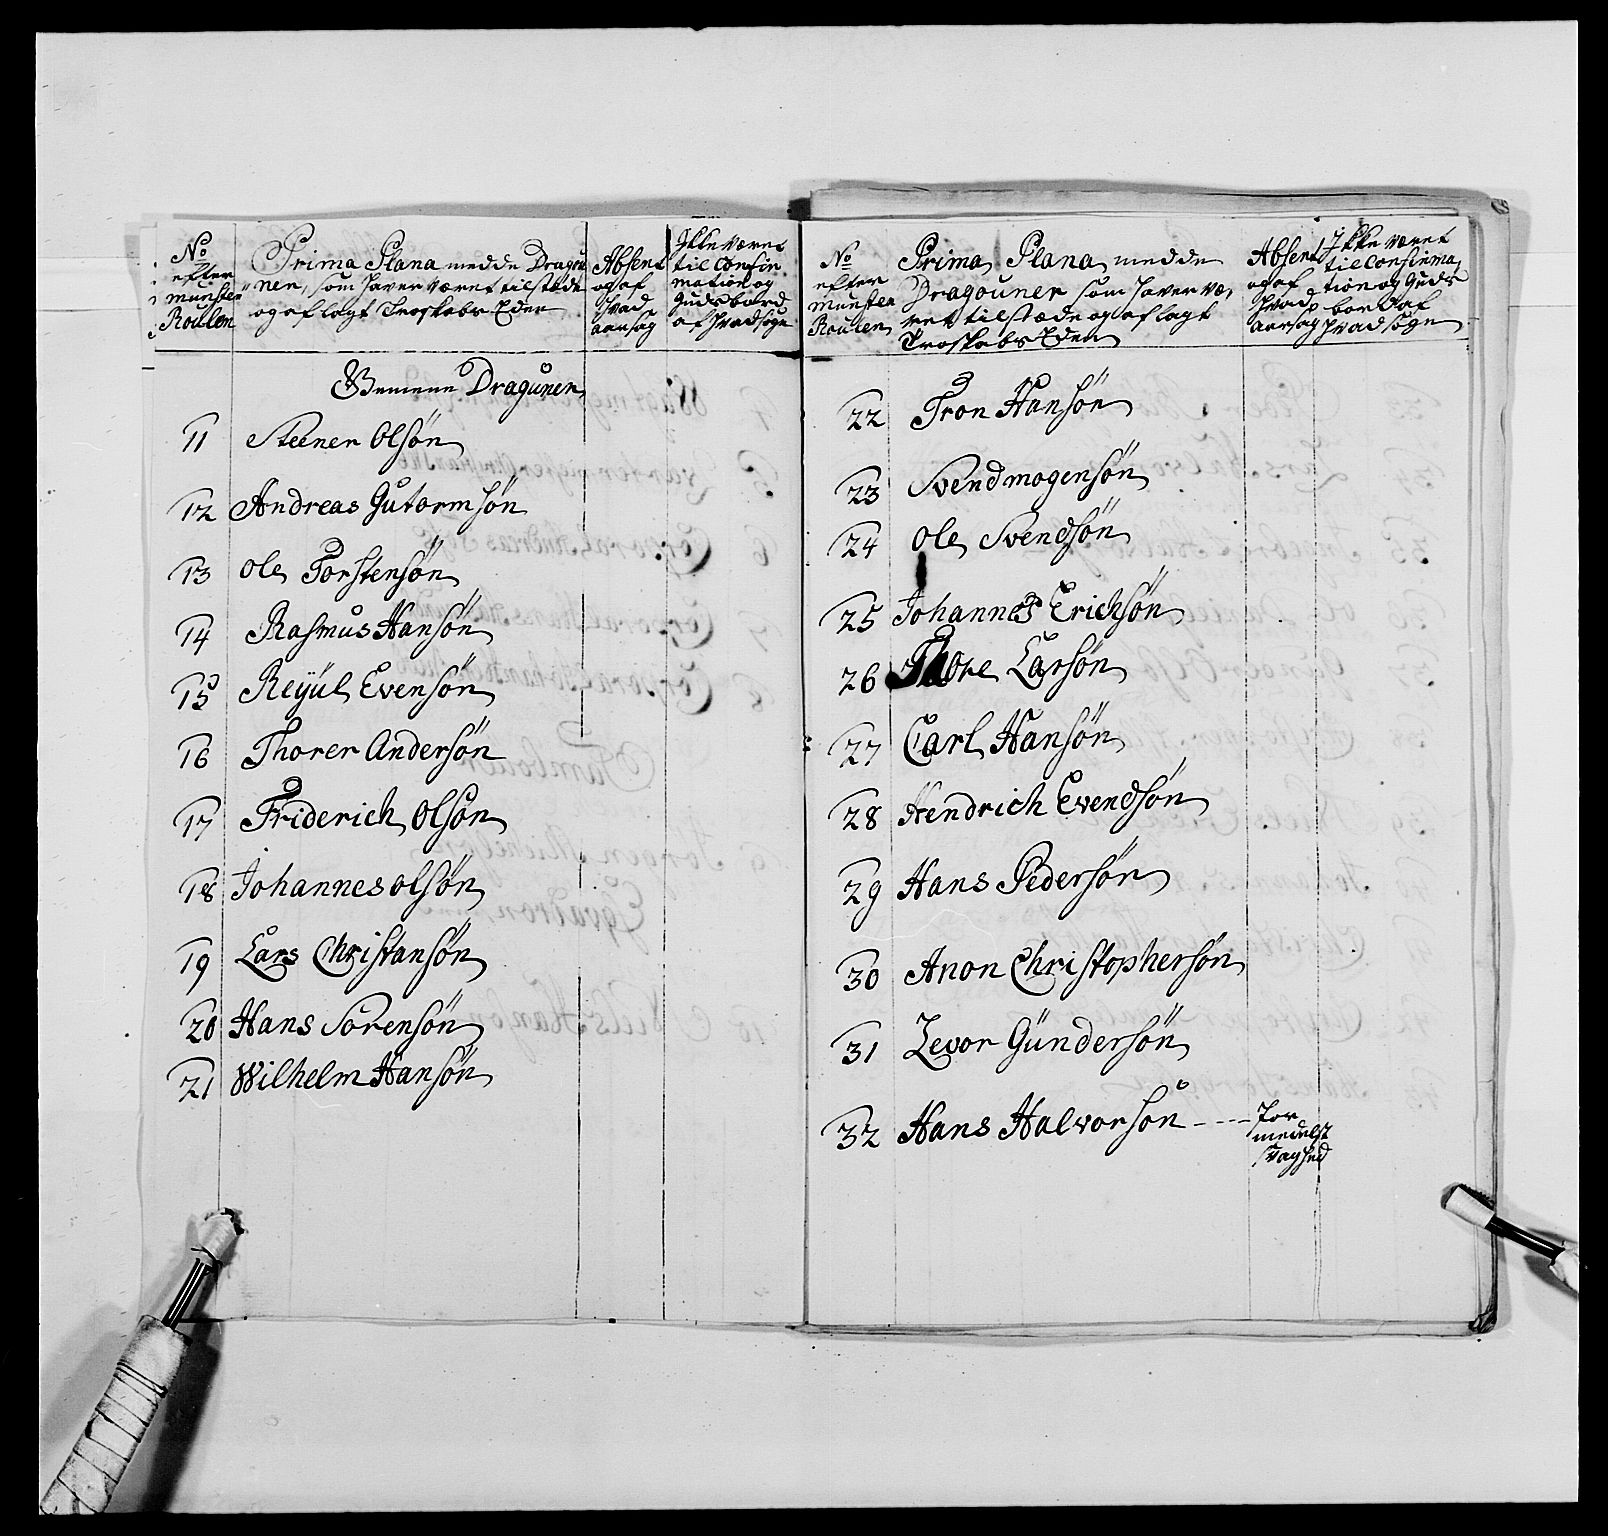 No
efter
Munster
Roulen
Prima Plana medde Dragou
nen, som haver været tilstæde
og aflagt Troskabs Eden
Absent
og af
hvad
aarsag
Ikke været
til Confir
mation og
Guds bord
af hvad sogn
Gemene Draguner
11 Steener Olsøn
12 Andreas Gutormsøn
13 Ole Torstensøn
14 Rasmus Hansøn
15 Reyul Evensøn
16 Thorer Andersøn
17 Friderich Olsøn
18 Johannes Olsøn
19 Lars Christansøn
20 Hans Sørensøn
21 Wilhelm Hansøn
No
efter
Munster
Roulen
Prima Plana medde
Dragouner som haver væ,
ret tilstæde og aflagt
Troskabs Eden
Absent
og af
hvad
aarsag
Ikke været
til Confirma,
tion og Guds
bord af
hvad sogn
22 Tron Hansøn
23 Svend mogensøn
24 Ole Svendsøn
25 Johannes Erichsøn
26 Thore Larsøn
27 Carl Hansøn
28 Hendrich Evendsøn
29 Hans Pedersøn
30 Anon Christophersøn
31 Levor Gündersøn
32 Hans Halvorsøn ---- For
medelst
svaghed